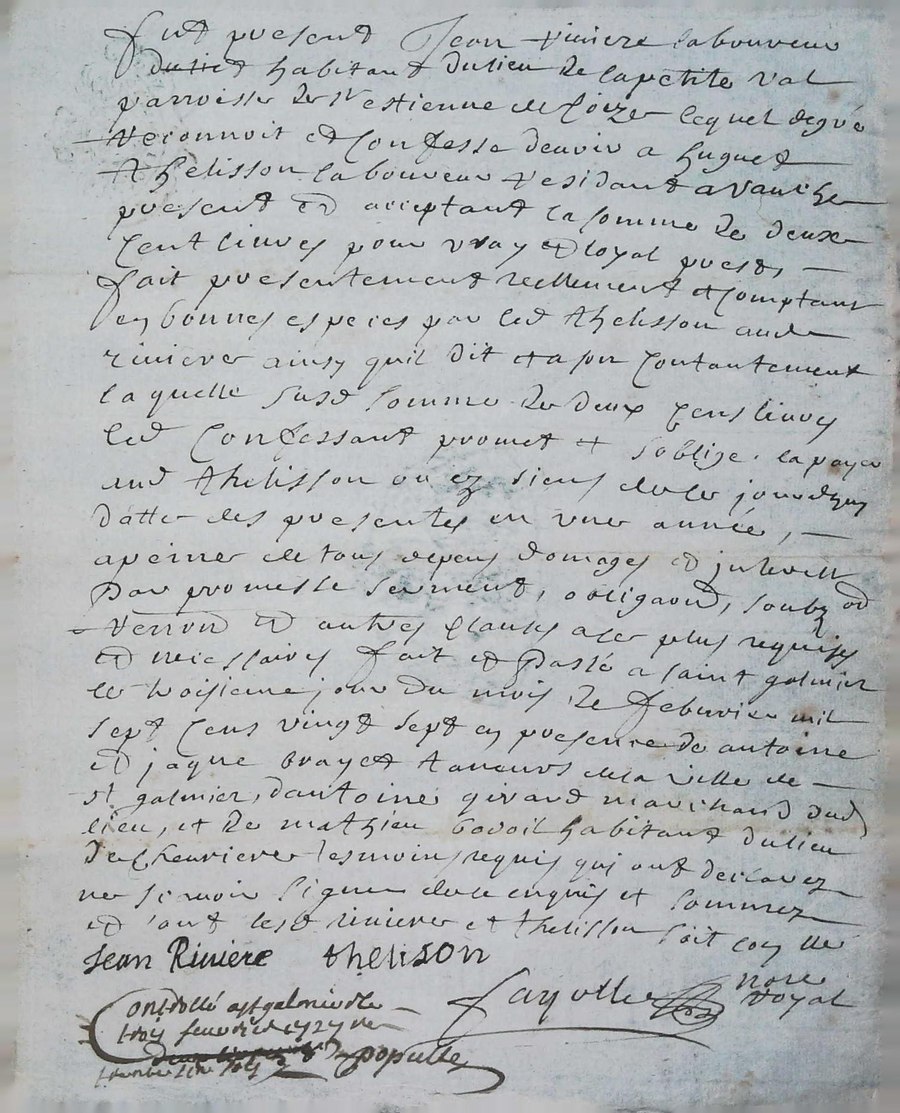 fut present Jean riviere laboureur
habitant du lieu de la petite val
parroisse de st estienne de Coize lequel de gré
reconnoit et Confesse devoir a huguet
thelisson laboureur residant a vauche
present et acceptant la somme de deux
Cent livres pour vray et loyal prest,
fait presentement reellement et Comptant
en bonnes especes par led thelisson aud
riviere ainsy quil dit et a son Contantement
laquelle susd somme de deux Cens livres
led Confessant promet et soblige la payer
aud thelisson ou ez siens de ce jourdhuy
datte des presentes en une année,
a peine de tous depens domages et interest
par promesse serment, obligaon, soubz on
renon et autres clauses a ce plus requises
et necessaires fait et passé a saint galmier
le troisieme jour du mois de febvrier mil
sept cens vingt sept en presence de antoine
et jaque brayet taneurs de la ville de
st galmier, dantoine girard marchand dud
lieu, et de mathieu habitant du lieu
de Chevriere tesmoins requis qui ont declarez
ne scavoir signer de ce enquis et sommez
et ont lesd riviere et thelisson soit
Jean Riviere thelison
nore
Fayolle royal
Controllé a st galmier le
trois fevrier 1727
populle